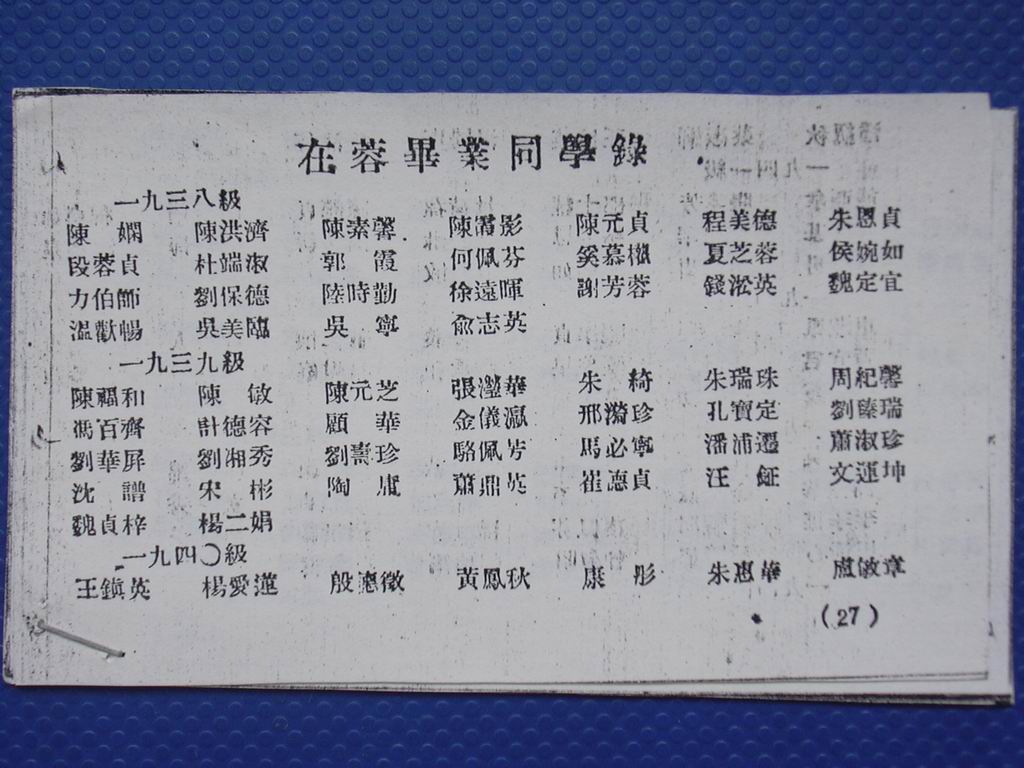 在蓉畢業同學錄
一九三八級
陳嫻 陳洪濟 陳素馨 陳霱影 陳元貞 程美德 朱恩貞
段蓉貞 杜端淑 郭霞 何佩芬 奚慕 夏芝蓉 侯婉如
力伯師 劉保德 陸時勤 徐遠暉 謝芳蓉 錢淞英 魏定宜
溫歡暢 吳美臨 吳寧 俞志英
一九三九級
陳福和 陳敏 陳元芝 張瀅華 朱綺 朱瑞珠 周紀馨
馮百齊 計德容 顧華 金儀瀛 邢漪珍 孔寶定 劉臻瑞
劉華屏 劉湘秀 劉壽珍 駱佩芳 馬必寧 潘浦遷 蕭淑珍
沈譜 宋彬 陶庸 蕭鼎英 崔惪貞 汪鉦 文運坤
魏貞梓 楊二娟
一九四〇級
王鎮英 楊愛蓮 殷憓徵 黃鳳秋 康彤 朱惠華 盧敏章
(27)